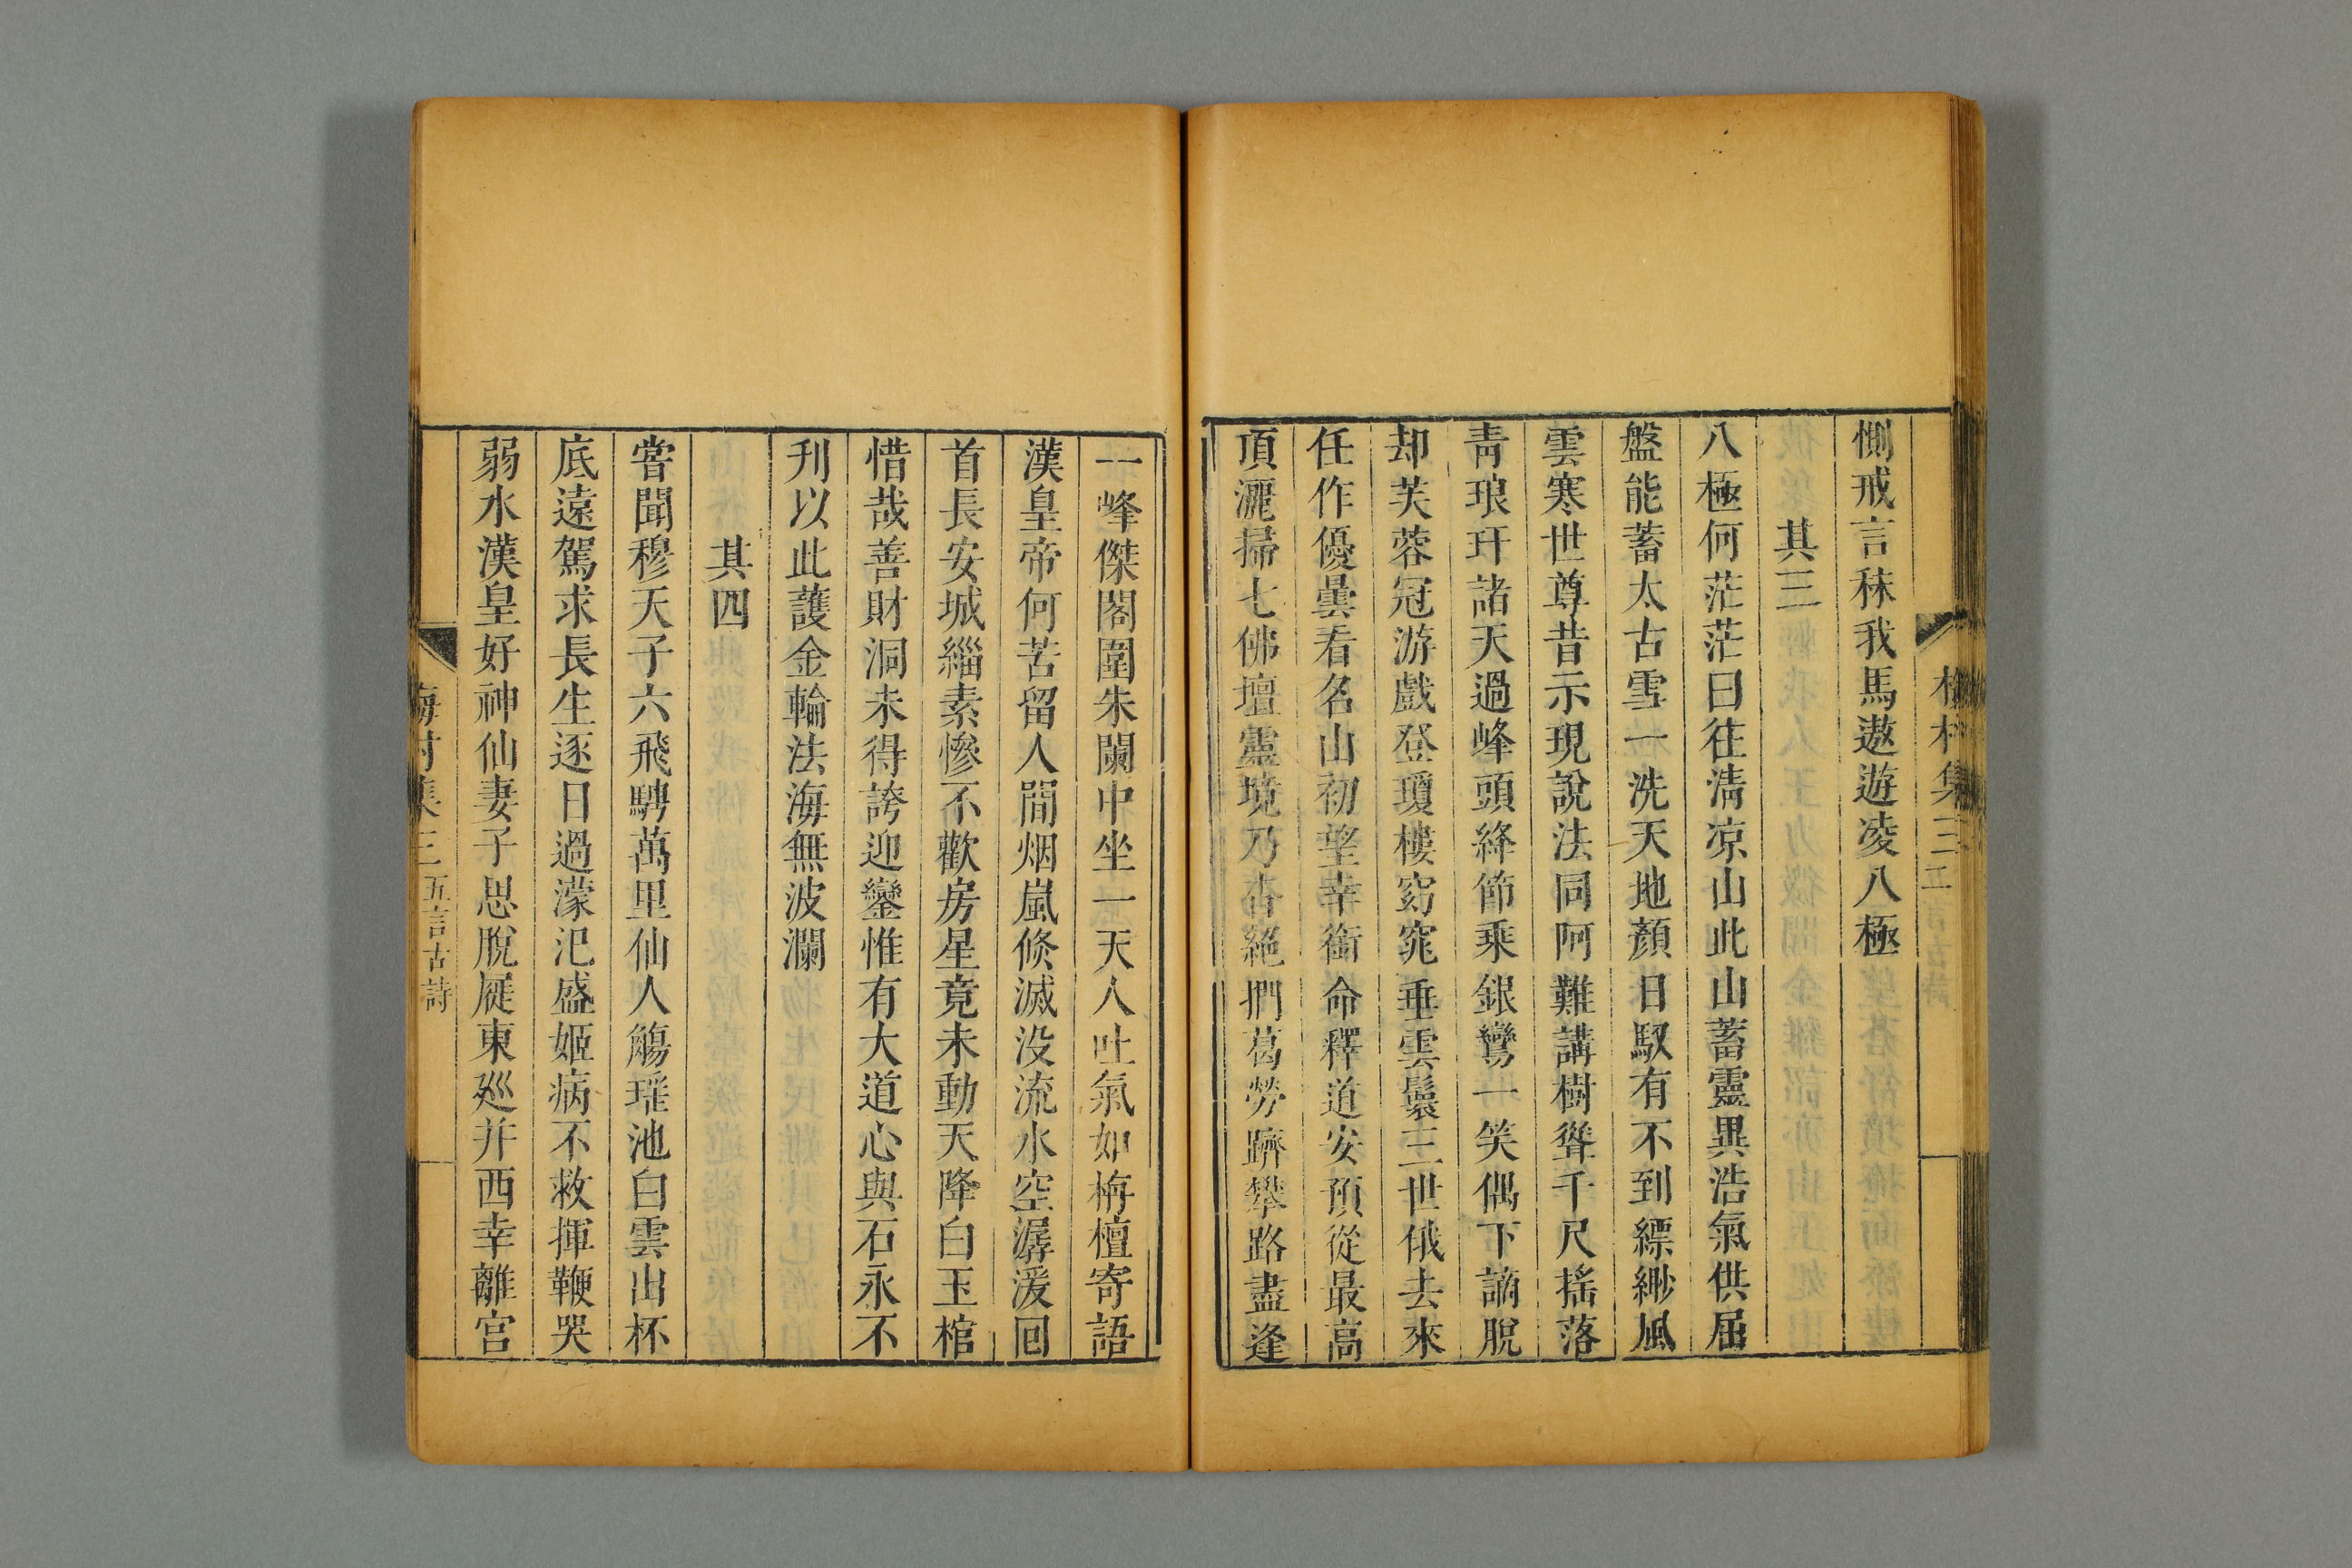 惻戒言秣我馬遨遊凌八極
其三
八極何茫茫曰往清凉山此山蓄靈異浩氣供屈
盤能蓄太古雪一洗天地顏日馭有不到縹緲風
雲寒世尊昔示現說法同阿難講樹聳千尺搖落
青琅玕諸天過峰頭絳節乘銀鸞一笑偶下謫脫
却芙蓉冠游戲登瓊樓窈窕垂雲鬟三世俄去來
任作優曇看名山初望幸銜命釋道安預從最高
頂灑掃七佛壇靈境乃杳絕捫葛勞躋攀路盡逢
一峰傑閣圍朱闌中坐一天人吐氣如栴檀寄語
漢皇帝何苦留人間烟嵐倏滅没流水空潺湲回
首長安城緇素慘不歡房星竟未動天降白玉棺
惜哉善財洞未得誇迎鑾惟有大道心與石永不
刋以此護金輪法海無波瀾
其四
嘗聞穆天子六飛騁萬里仙人觴瑤池白雲出杯
底遠駕求長生逐日過濛汜盛姬病不救揮鞭哭
弱水漢皇好神仙妻子思脫屣東廵并西幸離宫
梅村集三
五言古詩